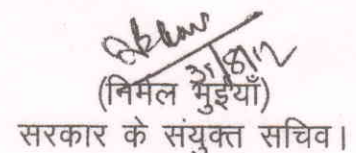 31/8/12
(निर्मल मुईयाँ)
सरकार के संयुक्त सचिव।